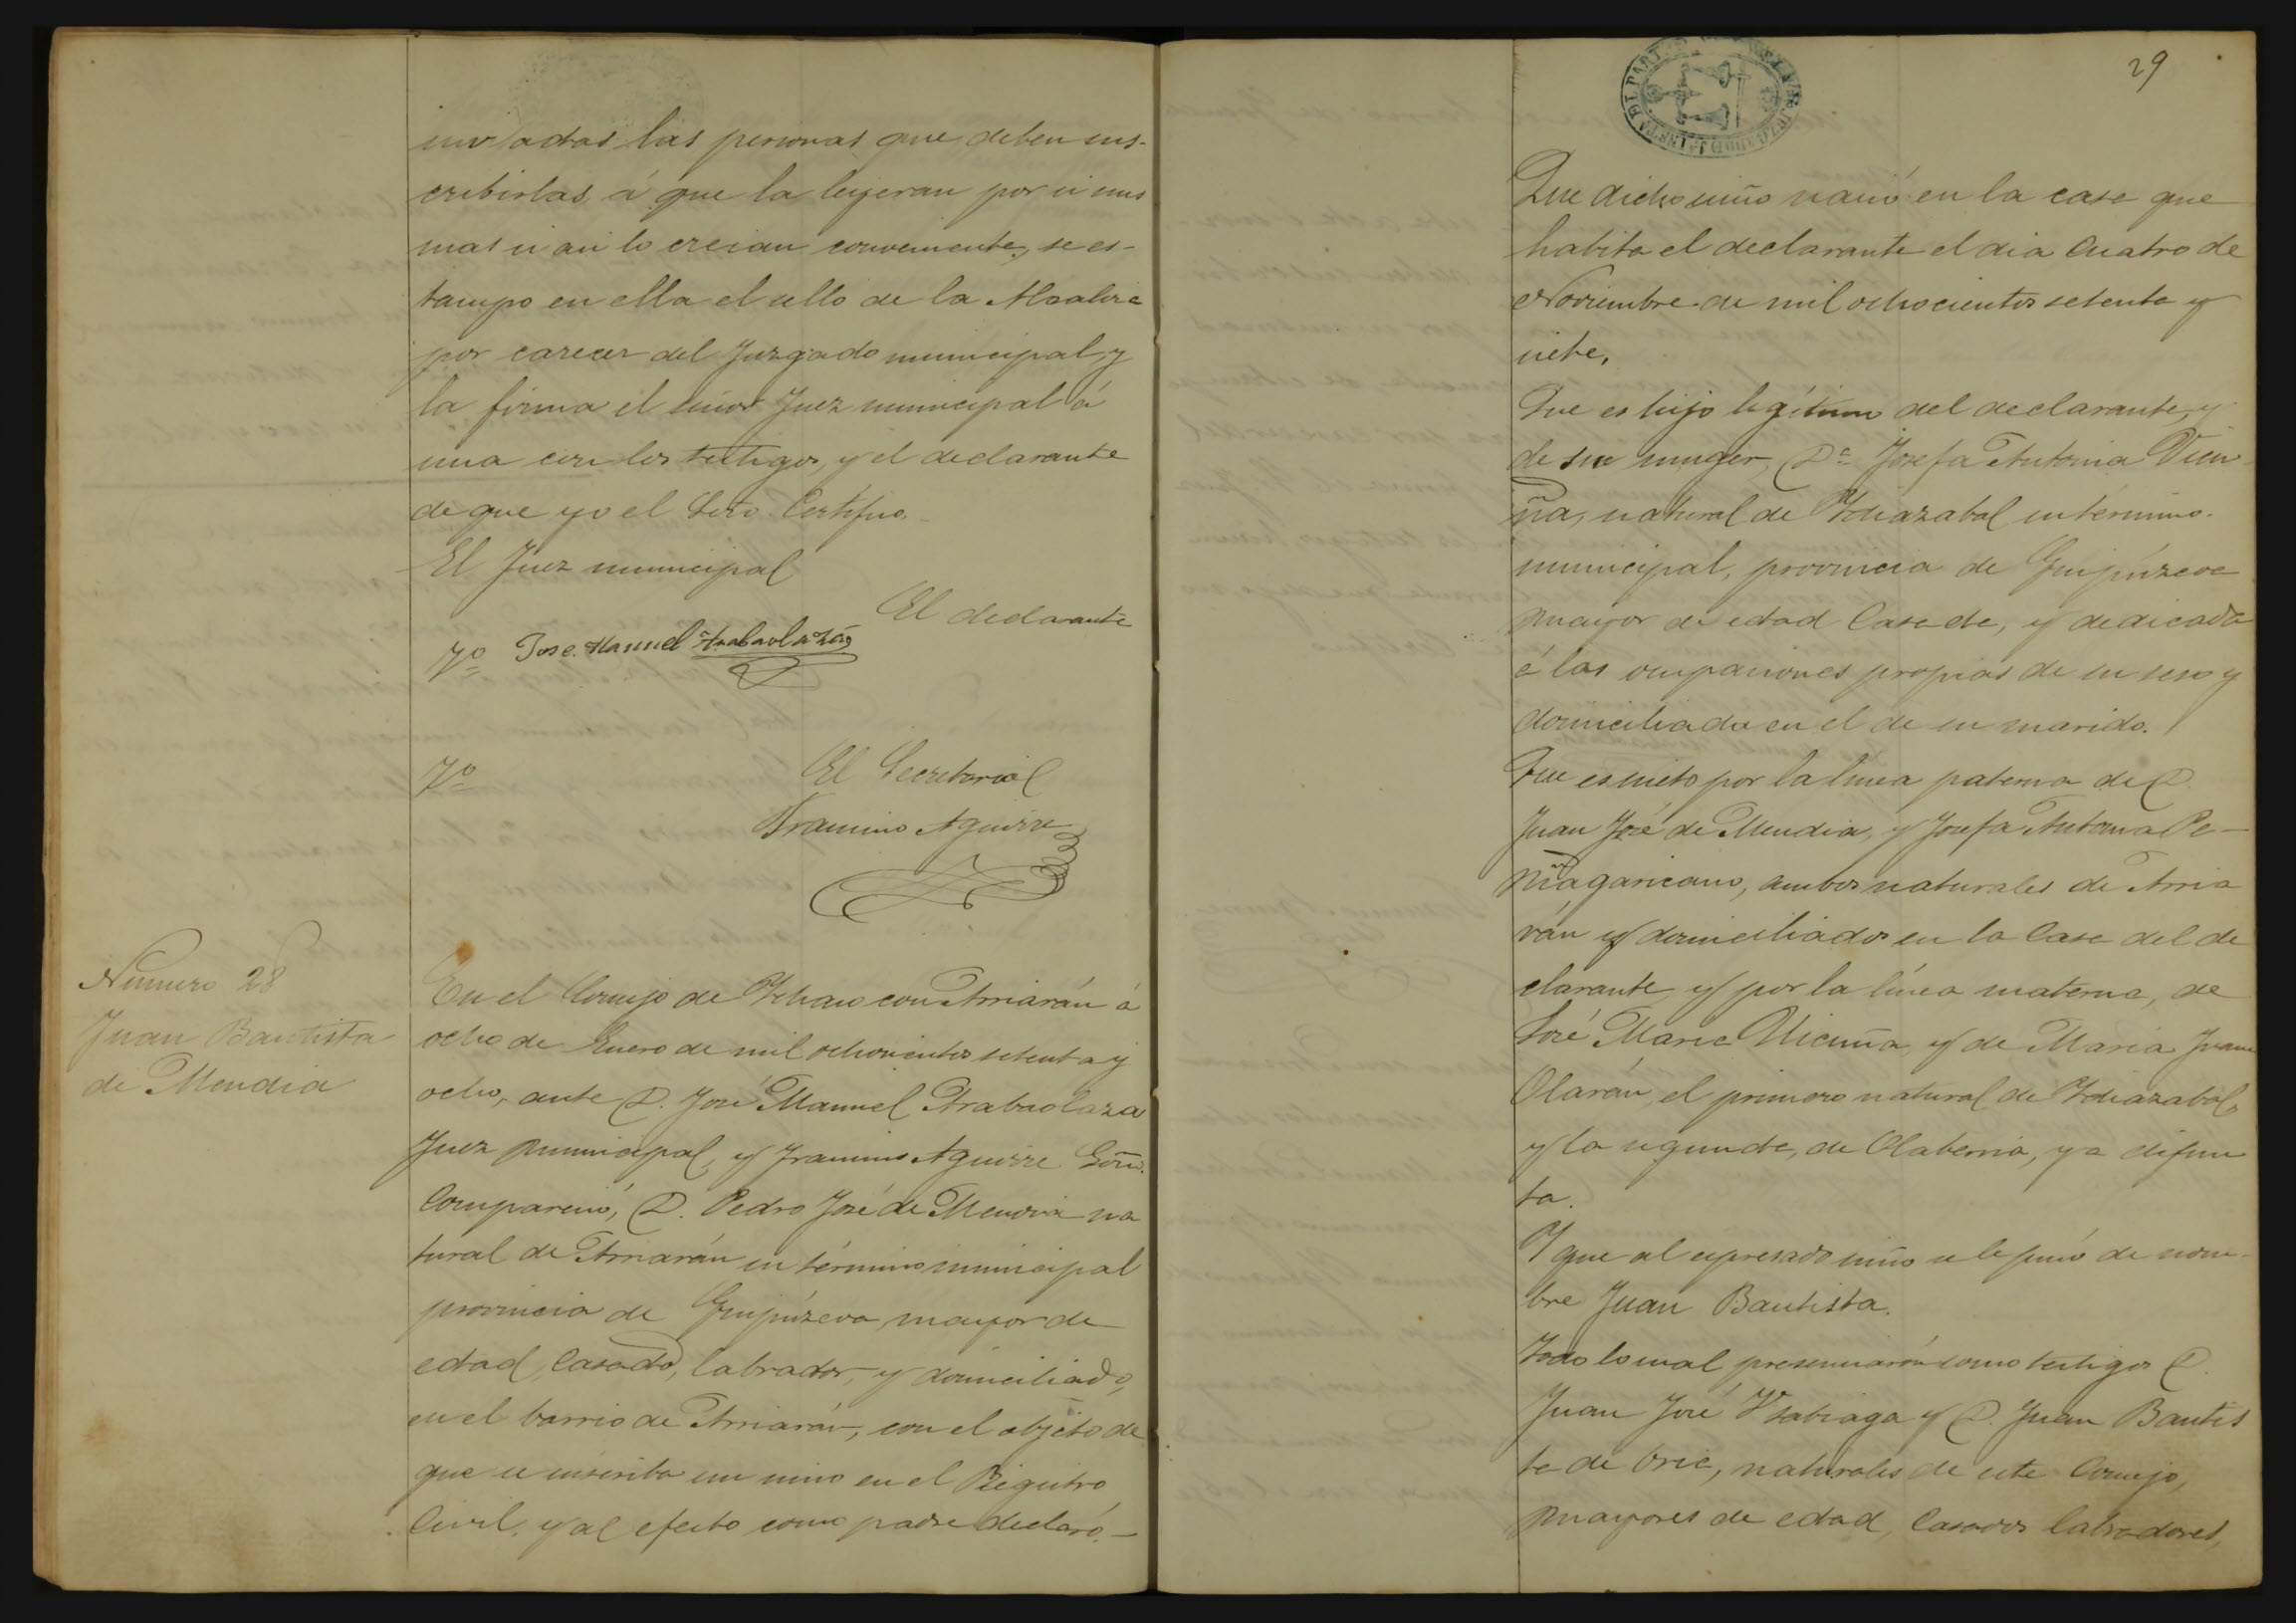 invitadas las personas que deben sus-
cribirlas á que la leyeran por si mis
mas si asi lo creian conveniente, se es-
tampo en ella el sello de la Alcaldia
por carecer del Juzgado municipal, y
la firma el señor Juez municipal á
una con los testigos, y el declarante
de que yo el Srio. Certifico.
El Juez municipal
El declarante
Jose Manuel Arabaolaza
El Secretario
Aguirre
Numero 28
Juan Bautista
de Mendia
En el Concejo de Ychaso con Arriarán á
ocho de Enero de mil ochocientos setenta y
ocho, ante D. José Manuel Arabaolaza
Juez municipal, y Aguirre
Compareció, D. Pedro José de Mendia na
tural de Arriarán su término municipal
provincia de Guipúzcoa, mayor de
edad, Casado, labrador, y domiciliado,
en el barrio de Arriarán, con el objeto de
que se inscriba un niño en el Registro
Civil, y al efecto como padre declaró.-
29
Que dicho niño nació en la casa que
habita el declarante el dia Cuatro de
Noviembre de mil ochocientos setenta y
siete.
Que es hijo legítimo del declarante, y
de su muger, Dª Josefa Antonia Vicu
ña, natural de Ydiazabal su término
municipal, provincia de Guipúzcoa
mayor de edad Casada, y dedicada
á las ocupaciones propias de su sexo y
domiciliada en el de su marido.
Que es nieto por la línea paterna de D.
Juan José de Mendia, y Josefa Antonia Pe-
ñagaricano, ambos naturales de Arria
rán y domiciliados en la Casa del de
clarante y por la línea materna, de
José Maria Vicuña y de Maria Juana
Olarán, el primero natural de Ydiazabal,
y la segunda, de Olaberria, ya difun
ta.
Y que al espresado niño se le puso de nom-
bre Juan Bautista.
Todo lo cual presenciarón como testigos D.
Juan José Ysabiaga y D. Juan Bautis
ta de Oria, naturales de este Concejo,
mayores de edad, Casados labradores,